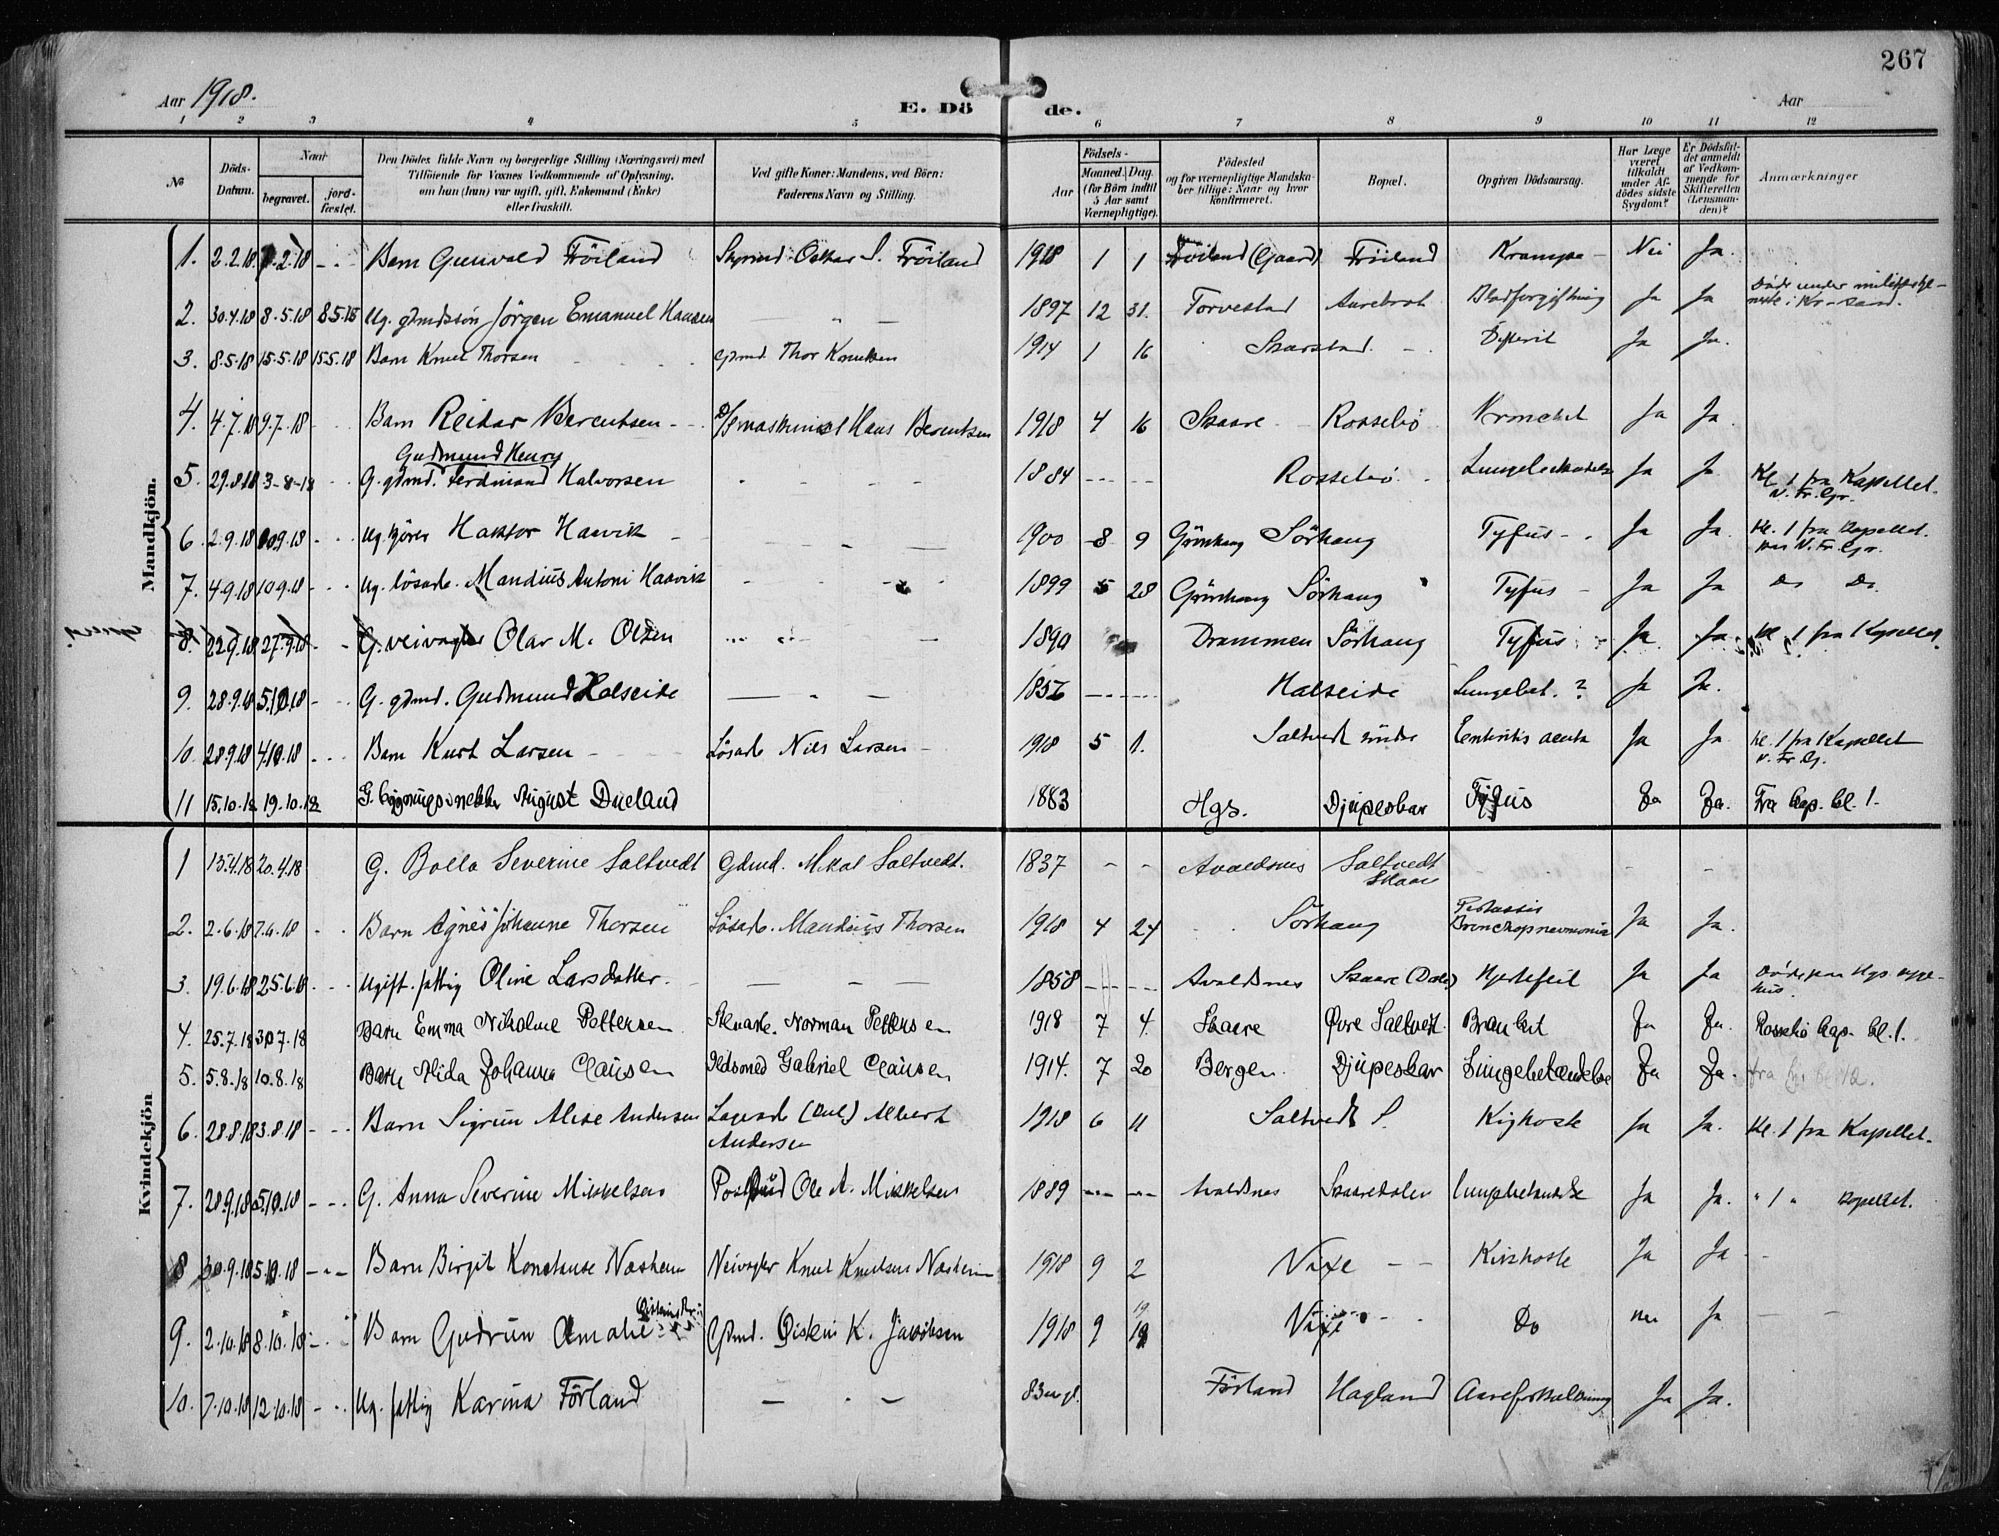 267
Aar 1918.
E. Döde.
Aar
1 2 3 4 5 6 7 8 9 10 11 12
No
Döds-Datum.
Naar
begravet.
jord-fæstet.
Den Dödes fulde Navn og borgerlige Stilling (Næringsvei) med
Tilföiende for Voxnes Vedkommende af Oplysning,
om han (hun) var ugift, gift, Enkemand (Enke)
eller fraskilt.
Ved gifte Koner: Mandens, ved Börn:
Faderens Navn og Stilling.
Födsels-
Aar
Maaned. Dag.
(for Börn indtil
5 Aar samt
Værnepligtige).
Födested
og for værnepligtige Mandska-
ber tillige: Naar og hvor
konfirmeret.
Bopæl.
Opgiven Dödsaarsag.
Har Læge
været
tilkaldt
under Af-
dödes sidste
Sygdom?
Er Dödsfal-
det anmeldt
af Vedkom-
mende for
Skifteretten
(Lensman-
den)?
Anmærkninger
Mandkjön.
1. 2.2.18 2.18 Barn Gunvald Fröiland Oskar S. Fröiland 1918 1 1 Fröiland (Gaard) Fröiland Krampe Nei Ja.
2. 30.4.18 8.5.18 8.5.18 Ug. gdmdssön Jörgen Emanuel Hansen 1897 12 31. Torvestad Blodforgiftning Ja Ja Döde under militærtje-
neste i Kr-sand.
3. 8.5.18 15.5.18 15.5.18 Barn Knut Thorsen Gdmd. Thor Knutsen 1914 1 16 Skarstad Difterit Ja Ja.
4. 4.7.18 9.7.18 Barn Reidar Berentsen D/Smaskinist Hans Berentsen 1918 4 16 Skaare Rossebö Bronchit Ja Ja.
Gudmund Henry
5. 29.8.18 3-8-18 G. gdmd. Ferdinand Halvorsen 1884 Rossebö Ja Ja Kl. 1 fra Kapellet.
V. Fr. Gr.
6. 2.9.18 9.18 Ug. kjörer Haktor Haavik 1900 8 9 Grönhaug Sörhaug Tyfus Ja Ja. Kl. 1 fra Kapellet.
V. Fr. Gr.
7. 4.9.18 10.9.18 Ug. lösarb. Mandius Antoni Haavik 1899 5 28 Grönhaug Sörhaug Tyfus Ja Ja Do Do.
8. 22.9.18 27.9.18 G. veivogter Olav M. Olsen 1890 Drammen Sörhaug Tyfus Ja Ja Kl 1 fra Kapellet.
9. 28.9.18 5.10.18 G. gdmd. Gudmund Halseide 1856 Halseide Lungebet. ? Ja Ja.
10. 28.9.18 4.10.18 Barn Kurt Larsen Lösarb. Nils Larsen 1918 5 1. Saltvedt söndre Enteritis acuta Ja Ja Kl. 1 fra Kapellet
V. Fr. G.
11 15.10.18 19.10.18 G. bygningssnekker August Dueland 1883 Hgs. Djupeskar Tyfus Ja Ja. Fra kap. kl. 1.
Kvindekjön
1 15.4.18 20.4.18 G. Bolla Severine Saltvedt Gdmd. Mikal Saltvedt. 1837 Avaldsnes Saltvedt
Skaare
2. 2.6.18 7.6.18 Barn Agnes Johanne Thorsen Lösarb. Mandius Thorsen 1918 4 24 Sörhaug Pertussis
Bronchopneumonia Ja Ja.
3. 19.6.18 25.6.18 Ugift. fattig Oline Larsdatter 1858 Avaldsnes Skaare (Dalen) Hjertefeil Ja Ja Döde paa Hgs syge-
hus.
4. 25.7.18 30.7.18 Barn Emma Nikoline Pettersen Norman Pettersen 1918 7 4. Skaare Övre Saltvedt. Bronkit Ja Ja. Rossebö kap. kl. 1.
5. 5.8.18 10.8.18 Barn Alida Johanna Clausen Gabriel Clausen 1914. 7 20 Bergen Djupeskar Lungebetændelse Ja Ja. fra kap
6. 28.8.18 3.8.18 Barn Sigrun Alise Andersen Lagerarb (Dal) Albert
Andersen 1918 6 11 Saltvedt S. Kighoste Ja Ja. Kl. 1 fra Kapellet.
7. 28.9.18 5.10.18 G. Anna Severine Mikkelsen Postbud Ole A. Mikkelsen 1889 Avaldsnes Skaaredalen Lungebetændelse Ja Ja. " 1 " kapellet.
8 30.9.18 5.10.18 Barn Birgit Konstanse Næsheim Veivogter Knut Knutsen Næsheim 1918 9 2 Vaxe Kikhoste Ja Ja
9. 2.10.18 8.10.18 Barn Gudrun Amalie Gdmd. Öistein K. Jacobsen 1918 9 19 Vaxe Do nei Ja
10. 7.10.18 12.10.18 Ug. fattig Karina Förland 83 aar gl. Förland Hagland Aareforkalkning Ja Ja.